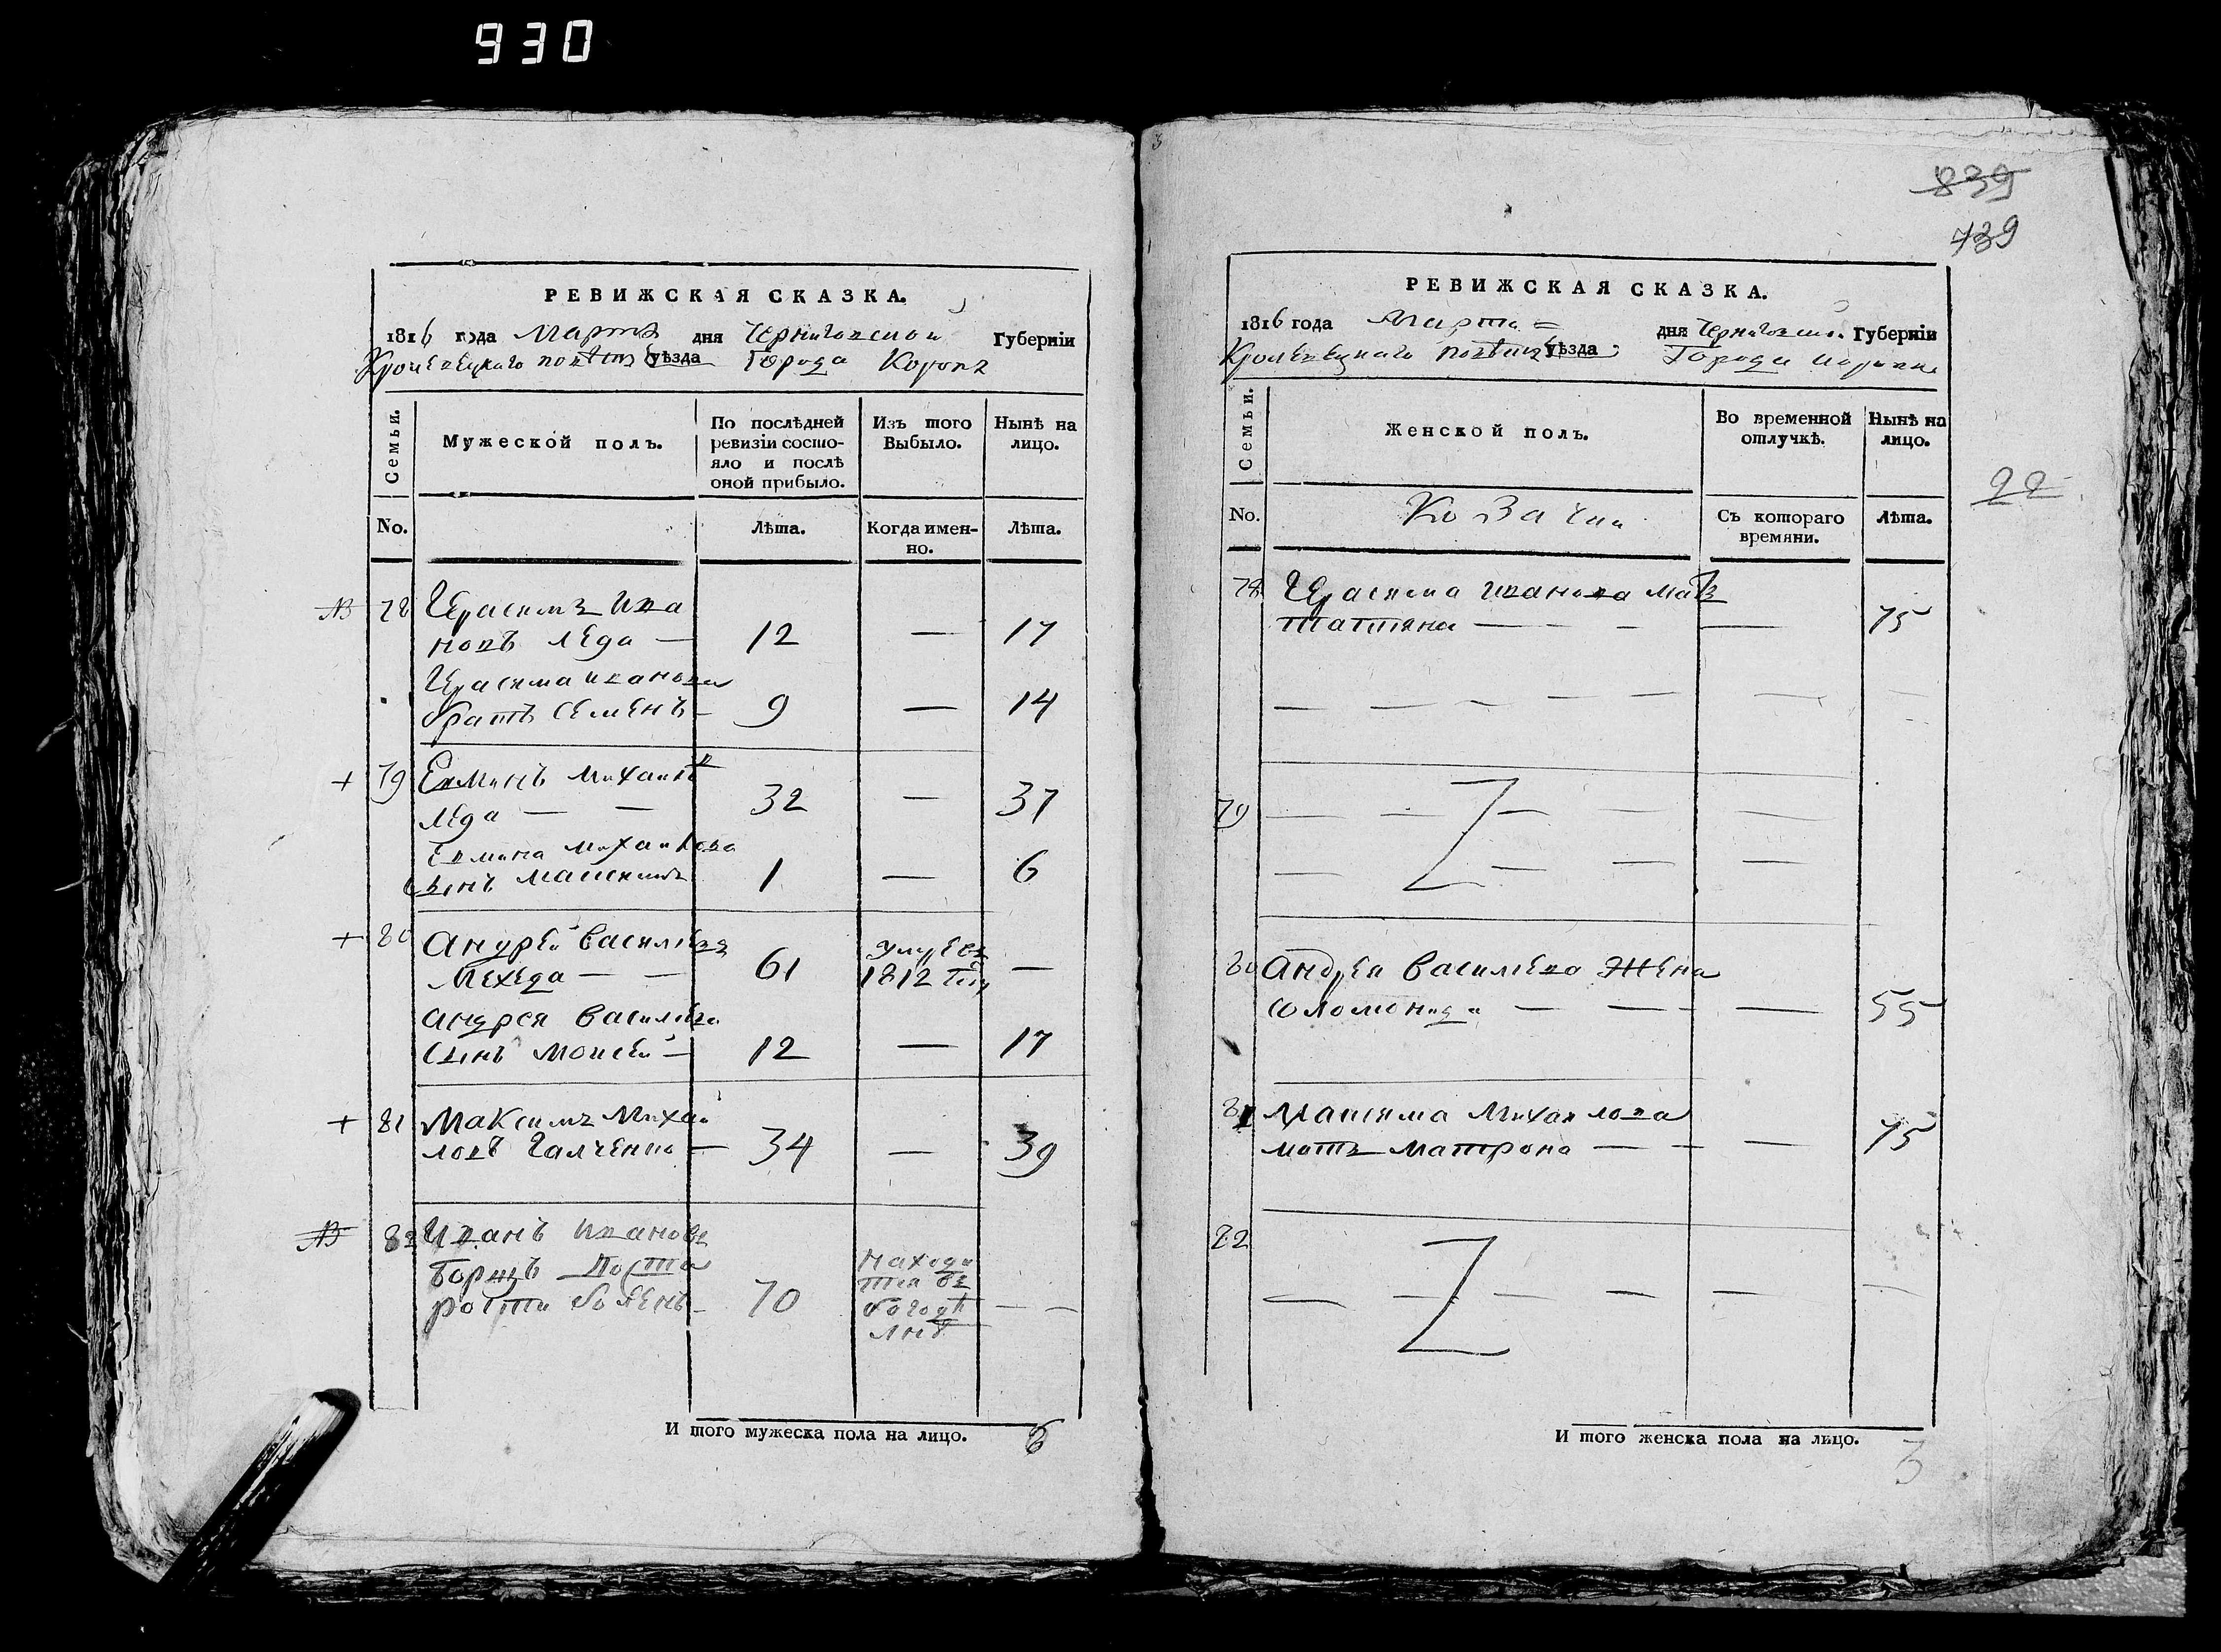 930
РЕВИЖСКАЯ СКАЗКА.
1816 года Марта дня Черниговской Губерніи
Кролевецкаго повѣта уѣзда Города Коропа
Семьи.
Мужеской полъ.
По послѣдней
ревизіи состо-
яло и послѣ
оной прибыло.
Изъ того
Выбыло.
Нынѣ на
лицо.
No.
Лѣта.
Когда имен-
но.
Лѣта.
78 Герасимъ Ива
новъ Леда — 12 — 17
Герасима Иванова
братъ Семенъ — 9 — 14
+ 79 Михаило
Леда — — 32 — 37
Михаилова
сынъ 1 — 6
+ 80 Андрей Васильевъ
Мехеда — — 61 умре въ
1812 году —
Андрея Васильева
сынъ Моисей — 12 — 17
+ 81 Максимъ Михай
ловъ Галченко — 34 — 39
82 Иванъ Ивановъ
Борщъ По ста
рости боленъ — 70 находи
тся въ
богодѣ
лнѣ — —
И того мужеска пола на лицо. 6
839
739
РЕВИЖСКАЯ СКАЗКА.
1816 года Марта = дня Черниговской Губерніи
Кролевецкаго повѣта уѣзда Города Коропа
22
Семьи.
Женской полъ.
Во временной
отлучкѣ.
Нынѣ на
лицо.
No.
Козачки
Съ котораго
времяни.
Лѣта.
78 Герасима Иванова мать
Татіяна — — — — 75
79
80 Андрея Васильева Жена
Соломонида — — — — 55
81 Максима Михайлова
мать Матрона — — — 75
82
И того женска пола на лицо. 3